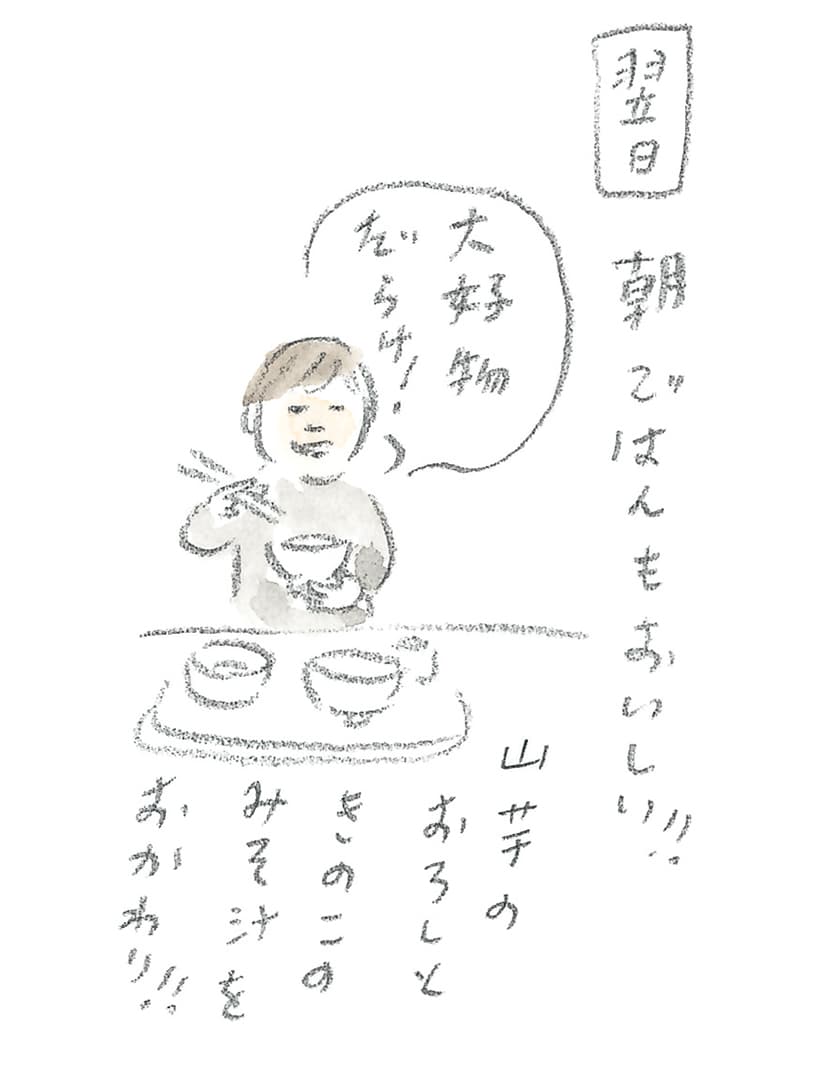 翌日
朝ごはんもおいしい!!
大好物
だらけ!
山芋の
おろしと
きのこの
みそ汁を
おかわり!!